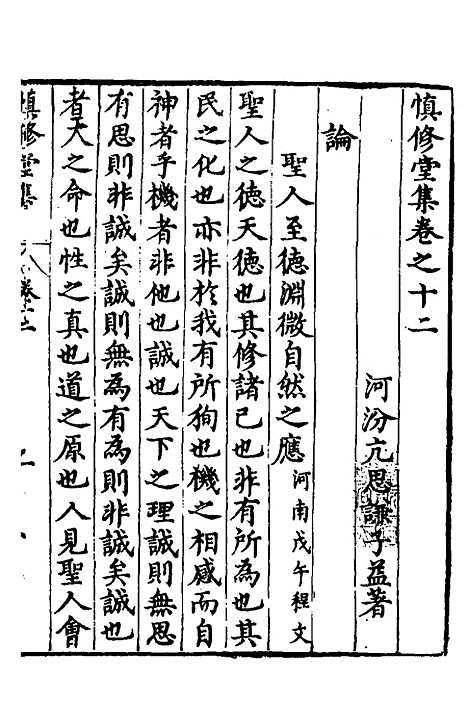 慎修堂集卷之十二
河汾亢思謙子益著
論
聖人至德淵微自然之應河南戊午程文
聖人之德天德也其修諸己也非有所為也其
民之化也亦非於我有所狥也機之相感而自
神者乎機者非他也誠也天下之理誠則無思
有思則非誠矣誠則無為有為則非誠矣誠也
者天之命也性之真也道之原也人見聖人會
慎修堂集 卷十二 一